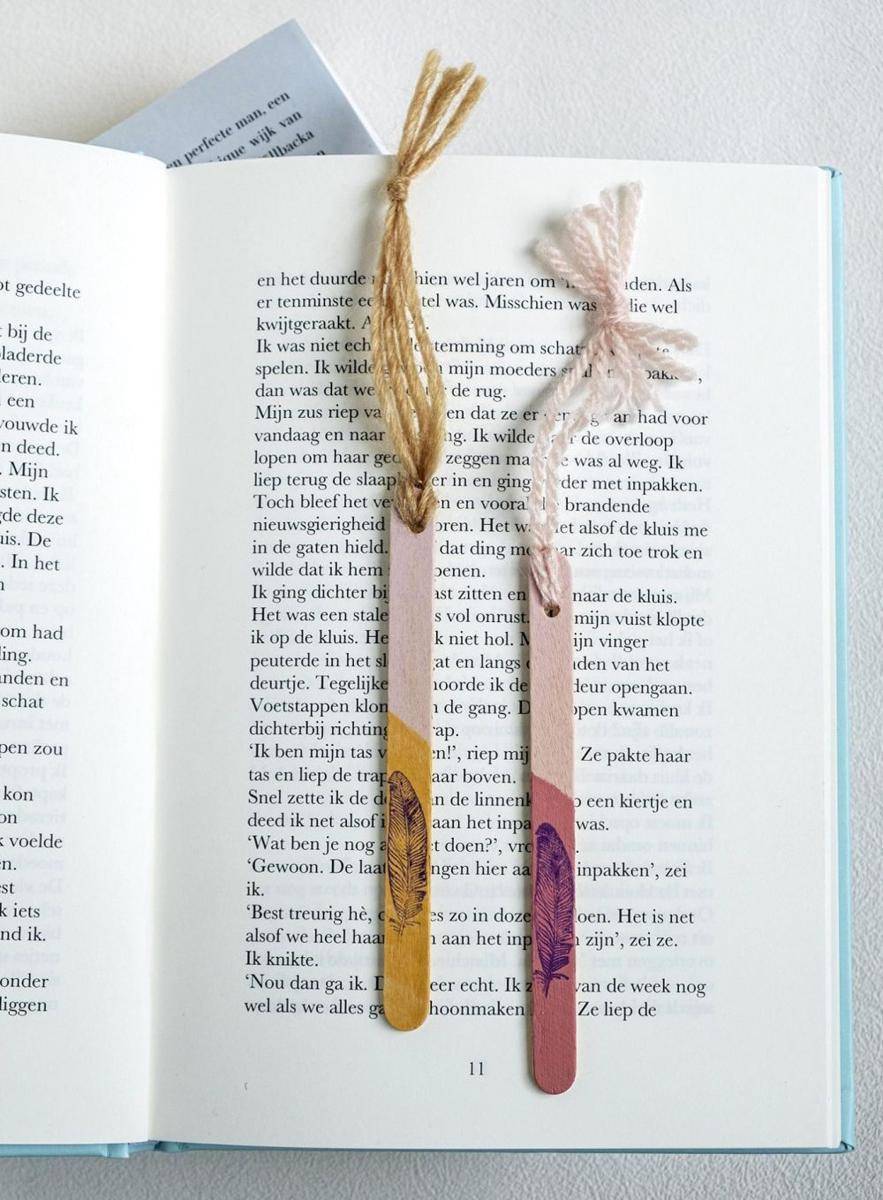 en perfecte man, een
ique wijk van
ot gedeelte
bij de
een
vouwde ik
n deed.
Mijn
sten. Ik
gde deze
De
In het
om had
anden en
schat
pen zou
kon
voelde
iets
nd ik.
onder
liggen
en het duurde hien wel jaren om nden. Als
er tenminste tel was. Misschien was die wel
kwijtgeraakt. A
Ik was niet ech temming om schat
spelen. Ik wilde mijn moeders
dan was dat we de rug.
Mijn zus riep va en dat ze er had voor
vandaag en naar ng. Ik wilde de overloop
lopen om haar ged zeggen ma was al weg. Ik
liep terug de slaap er in en ging der met inpakken.
Toch bleef het ve en en vooral brandende
nieuwsgierigheid oren. Het w et alsof de kluis me
in de gaten hield. dat ding me ar zich toe trok en
wilde dat ik hem penen.
Ik ging dichter bij ast zitten en naar de kluis.
Het was een stale s vol onrust. mijn vuist klopte
ik op de kluis. He k niet hol. M ijn vinger
peuterde in het sl gat en langs nden van het
deurtje. Tegelijke hoorde ik de deur opengaan.
Voetstappen klon n de gang. D open kwamen
dichterbij richting rap.
‘Ik ben mijn tas v en!’, riep mij Ze pakte haar
tas en liep de trap aar boven.
Snel zette ik de d n de linnenk p een kiertje en
deed ik net alsof i aan het inpa was.
‘Wat ben je nog a t doen?’, vro
‘Gewoon. De laat ngen hier aa inpakken’, zei
ik.
‘Best treurig hè, es zo in doze oen. Het is net
alsof we heel haar n aan het inp n zijn’, zei ze.
Ik knikte.
‘Nou dan ga ik. D eer echt. Ik z van de week nog
wel als we alles ga hoonmaken Ze liep de
11